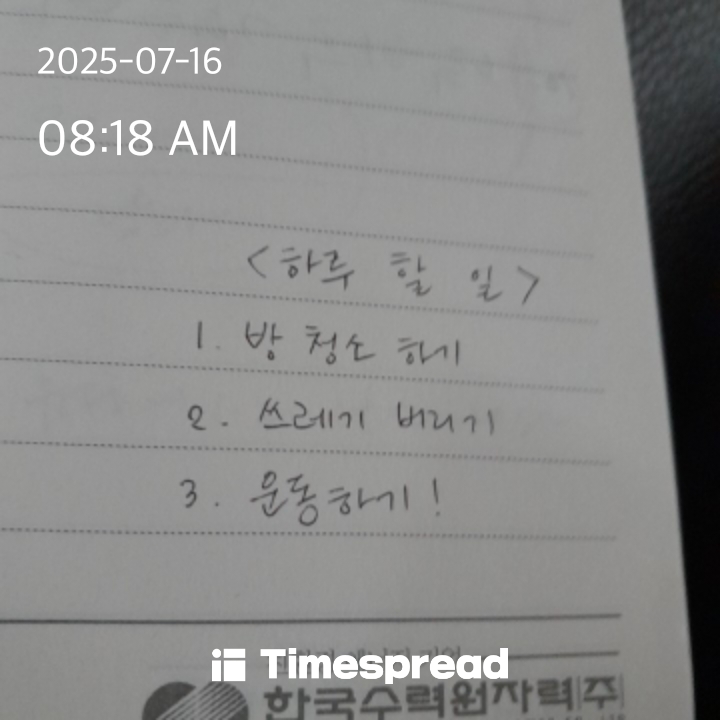 2025-07-16
08:18 AM
<하루 할 일>
1. 방 청소 하기
2. 쓰레기 버리기
3. 운동하기!
Timespread
한국수력원자력(주)